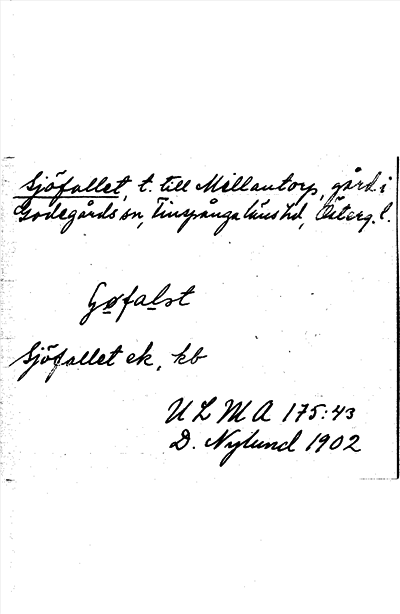 Sjöfallet, t. till Mellantorp, gård i
Godegårds sn, Finspånga läns hd, Österg. l.
Sjöfallet ek, kb
ULMA 175:43
D. Nylund 1902